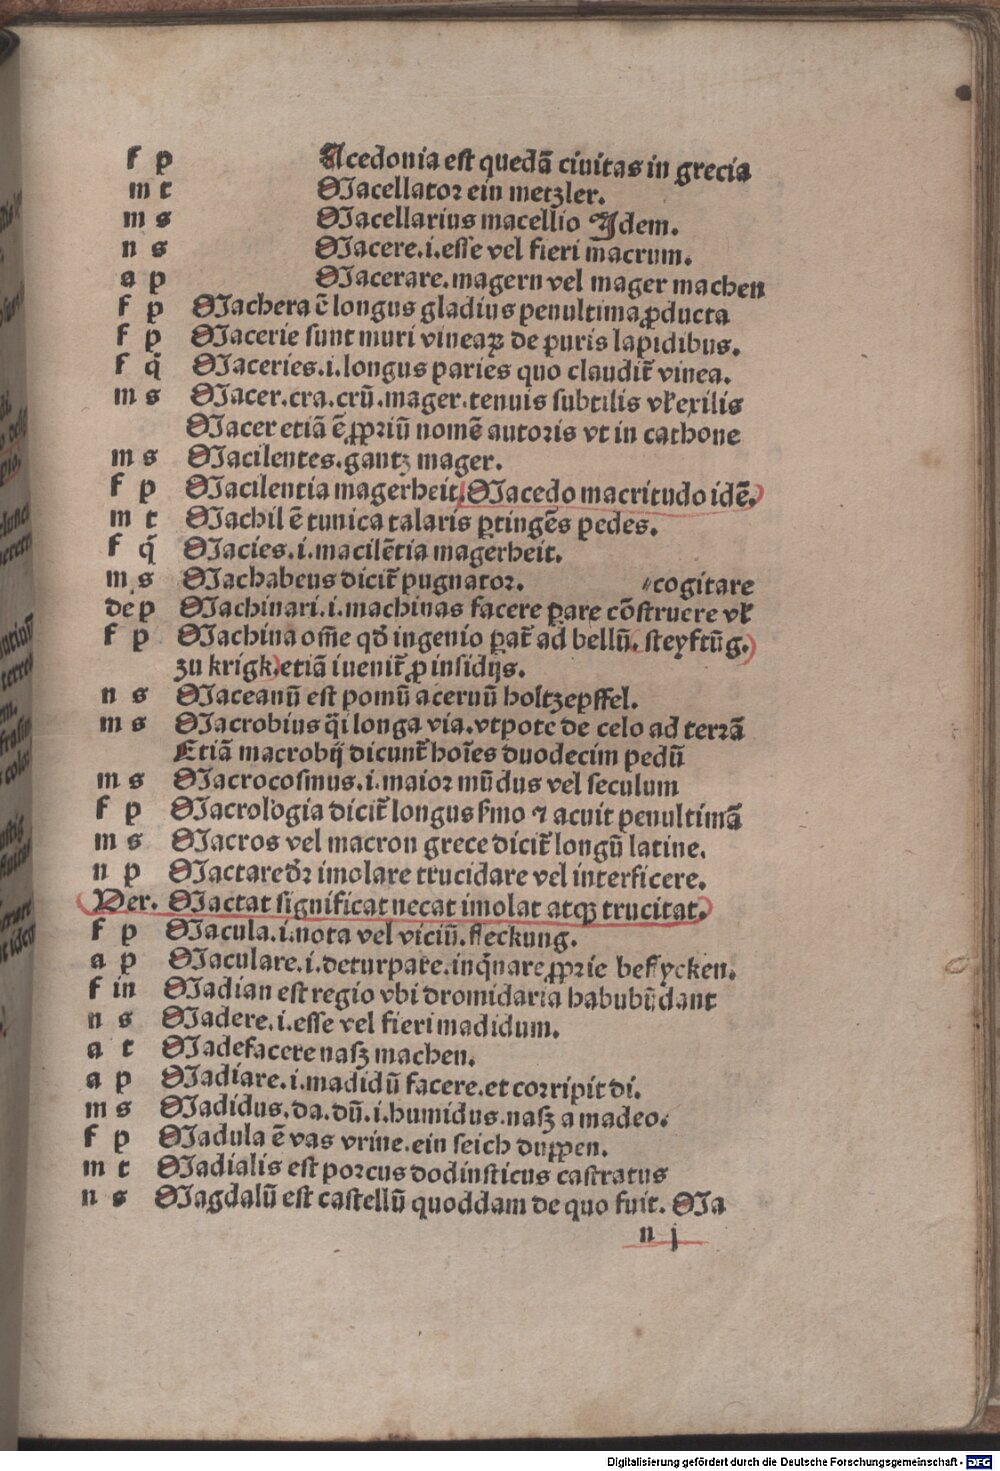 f p Acedonia est quedā ciuitas in grecia
m t Macellator ein metzler.
m s Macellarius macellio Idem.
n s Macere.i.esse vel fieri macrum.
a p Macerare.magern vel mager machen
f p Machera ē longus gladius penultima ꝓducta
f p Macerie sunt muri vineaꝝ de puris lapidibus.
f q̄ Maceries.i.longus paries quo claudit᷑ vinea.
m s Macer.cra.crū.mager.tenuis subtilis vľ exilis
Macer etiā ē ꝓpriū nomē autoris vt in cathone
m s Macilentes.gantz mager.
f p Macilentia magerheit.Macedo macritudo idē.
m t Machil ē tunica talaris ꝑtingēs pedes.
f q̄ Macies.i.macilētia magerheit.
m s Machabeus dicit᷑ pugnator. cogitare
de p Machinari.i.machinas facere ꝑare cōstruere vľ
f p Machina om̄e qď ingenio ꝑat᷑ ad bellū.steyftūg.
zu krigk.etiā iuenit᷑ ꝓ insidijs.
n s Maceanū est pomū aceruū holtzepffel.
m s Macrobius q̄i longa via.vtpote de celo ad terrā
Etiā macrobij dicunt᷑ hoīes duodecim pedū
m s Macrocosmus.i.maior mūdus vel seculum
f p Macrologia dicit᷑ longus ẜmo ⁊ acuit penultimā
m s Macros vel macron grece dicit᷑ longū latine.
n p Mactare dr̄ imolare trucidare vel interficere.
Ver. Mactat significat necat imolat atqꝫ trucitat.
f p Macula.i.nota vel viciū.fleckung.
a p Maculare.i.deturpare.inq̄nare ꝓprie beflycken.
f in Madian est regio vbi dromidaria habubūdant
n s Madere.i.esse vel fieri madidum.
a t Madefacere nasz machen.
a p Madiare.i.madidū facere.et corripit di.
m s Madidus.da.dū.i.humidus.nasz a madeo.
f p Madula ē vas vrine.ein seich duppen.
m t Madialis est porcus dodinsticus castratus
n s Magdalū est castellū quoddam de quo fuit. Ma
n j
Digitalisierung gefördert durch die Deutsche Forschungsgemeinschaft - DFG